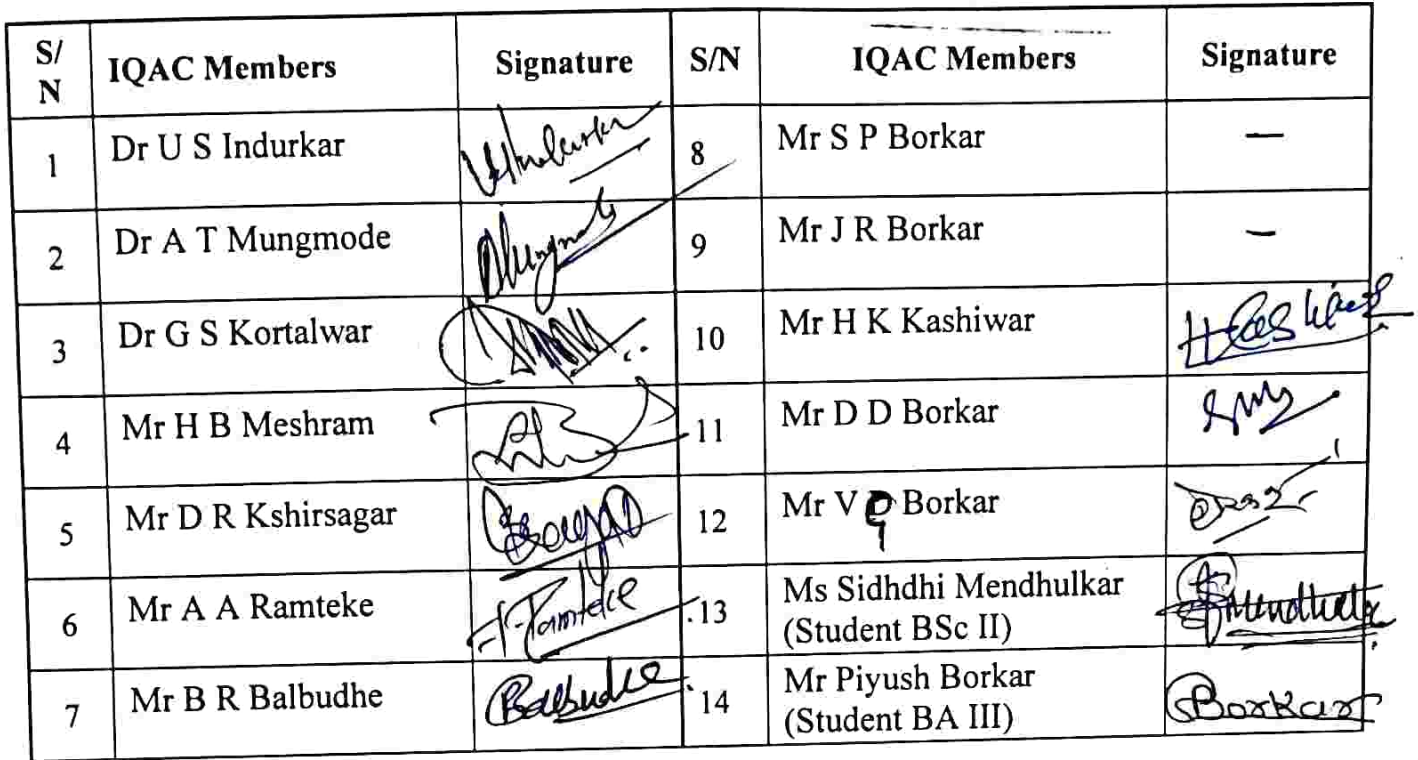 S/
N
IQAC Members
Signature
S/N
IQAC Members
Signature
1
Dr U S Indurkar
8
Mr S P Borkar
—
2
Dr A T Mungmode
9
Mr J R Borkar
—
3
Dr G S Kortalwar
10
Mr H K Kashiwar
4
Mr H B Meshram
11
Mr D D Borkar
5
Mr D R Kshirsagar
12
Mr V Borkar
6
Mr A A Ramteke
Ramteke
13
Ms Sidhdhi Mendhulkar
(Student BSc II)
7
Mr B R Balbudhe
Balbudhe
14
Mr Piyush Borkar
(Student BA III)
PBorkar